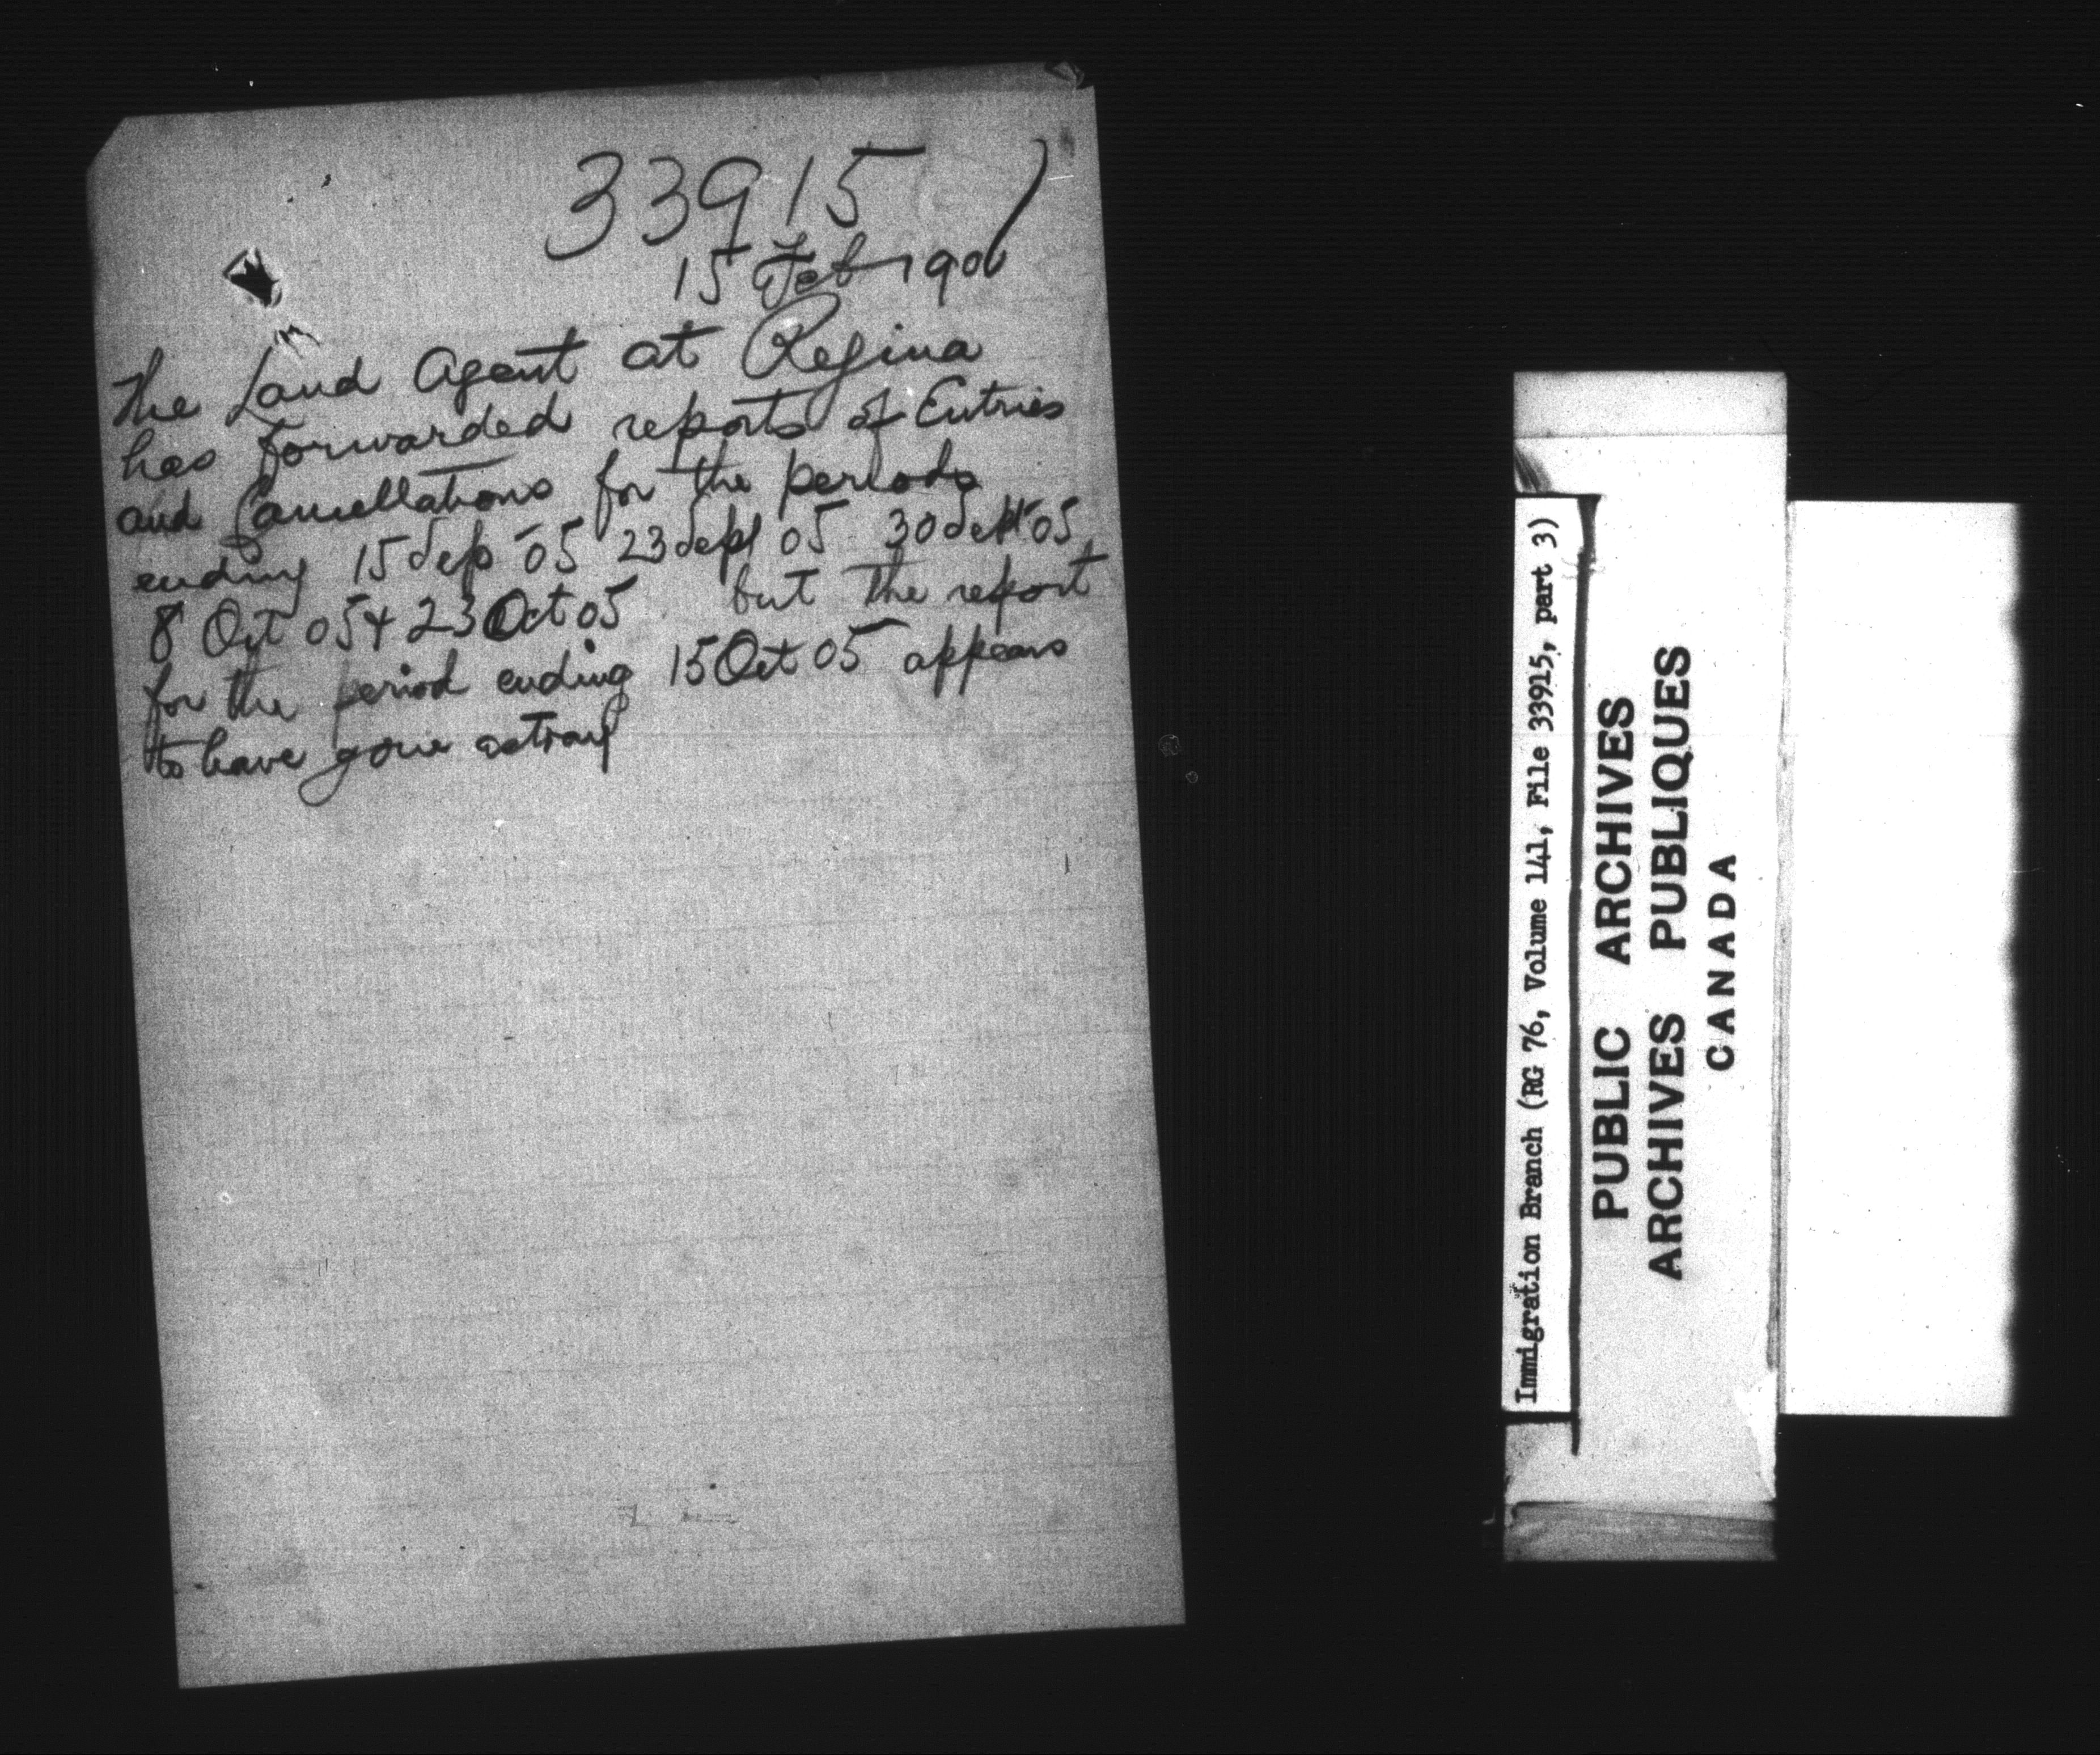 33915
15 Feb 1906
The Land Agent at Regina
has forwarded reports of Entries
and Cancellations for the periods
ending 15 Sep 05 23 Sept 05 30 Sept 05
8 Oct 05 & 23 Oct 05 but the report
for the period ending 15 Oct 05 appears
to have gone astray
Immigration Branch (RG 76, Volume 141, File 33915, part 3)
PUBLIC ARCHIVES
ARCHIVES PUBLIQUES
CANADA